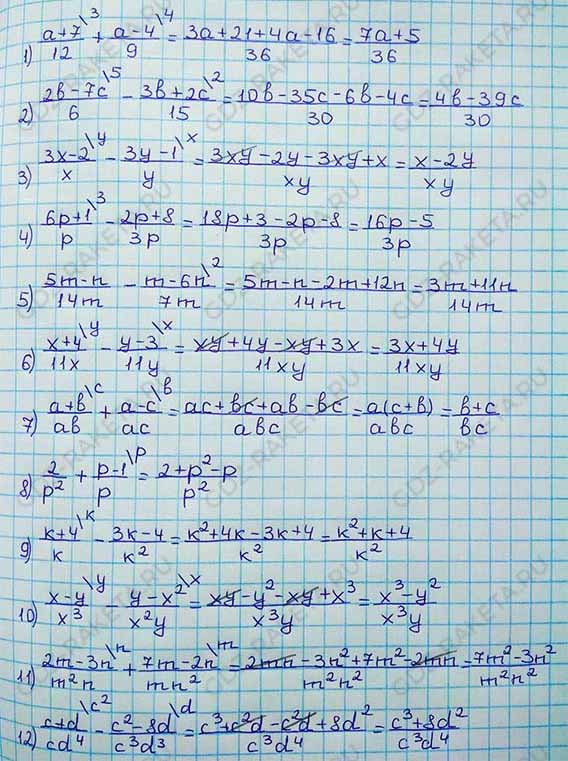 1) (a+7\3)/12 + (a-4\4)/9 = (3a+21+4a-16)/36 = (7a+5)/36
2) (2в-7c\5)/6 - (3в+2c\2)/15 = (10в-35c-6в-4c)/30 = (4в-39c)/30
3) (3x-2\y)/x - (3y-1\x)/y = (3xy-2y-3xy+x)/xy = (x-2y)/xy
4) (6p+1\3)/p - (2p+8)/3p = (18p+3-2p-8)/3p = (16p-5)/3p
5) (5m-n)/14m - (m-6n\2)/7m = (5m-n-2m+12n)/14m = (3m+11n)/14m
6) (x+4\y)/11x - (y-3\x)/11y = (xy+4y-xy+3x)/11xy = (3x+4y)/11xy
7) (a+в\c)/aв + (a-c\в)/ac = (ac+вc+aв-вc)/aвc = a(c+в)/aвc = (в+c)/вc
8) 2/p² + (p-1\p)/p = (2+p²-p)/p²
9) (к+4\к)/к - (3к-4)/к² = (к²+4к-3к+4)/к² = (к²+к+4)/к²
10) (x-y\y)/x³ - (y-x²\x)/x²y = (xy-y²-xy+x³)/x³y = (x³-y²)/x³y
11) (2m-3n\n)/m²n + (7m-2n\m)/mn² = (2mn-3n²+7m²-2mn)/m²n² = (7m²-3n²)/m²n²
12) (c+d\c²)/cd⁴ - (c²-8d\d)/c³d³ = (c³+c²d-c²d+8d²)/c³d⁴ = (c³+8d²)/c³d⁴
GDZ-RAKETA.RU